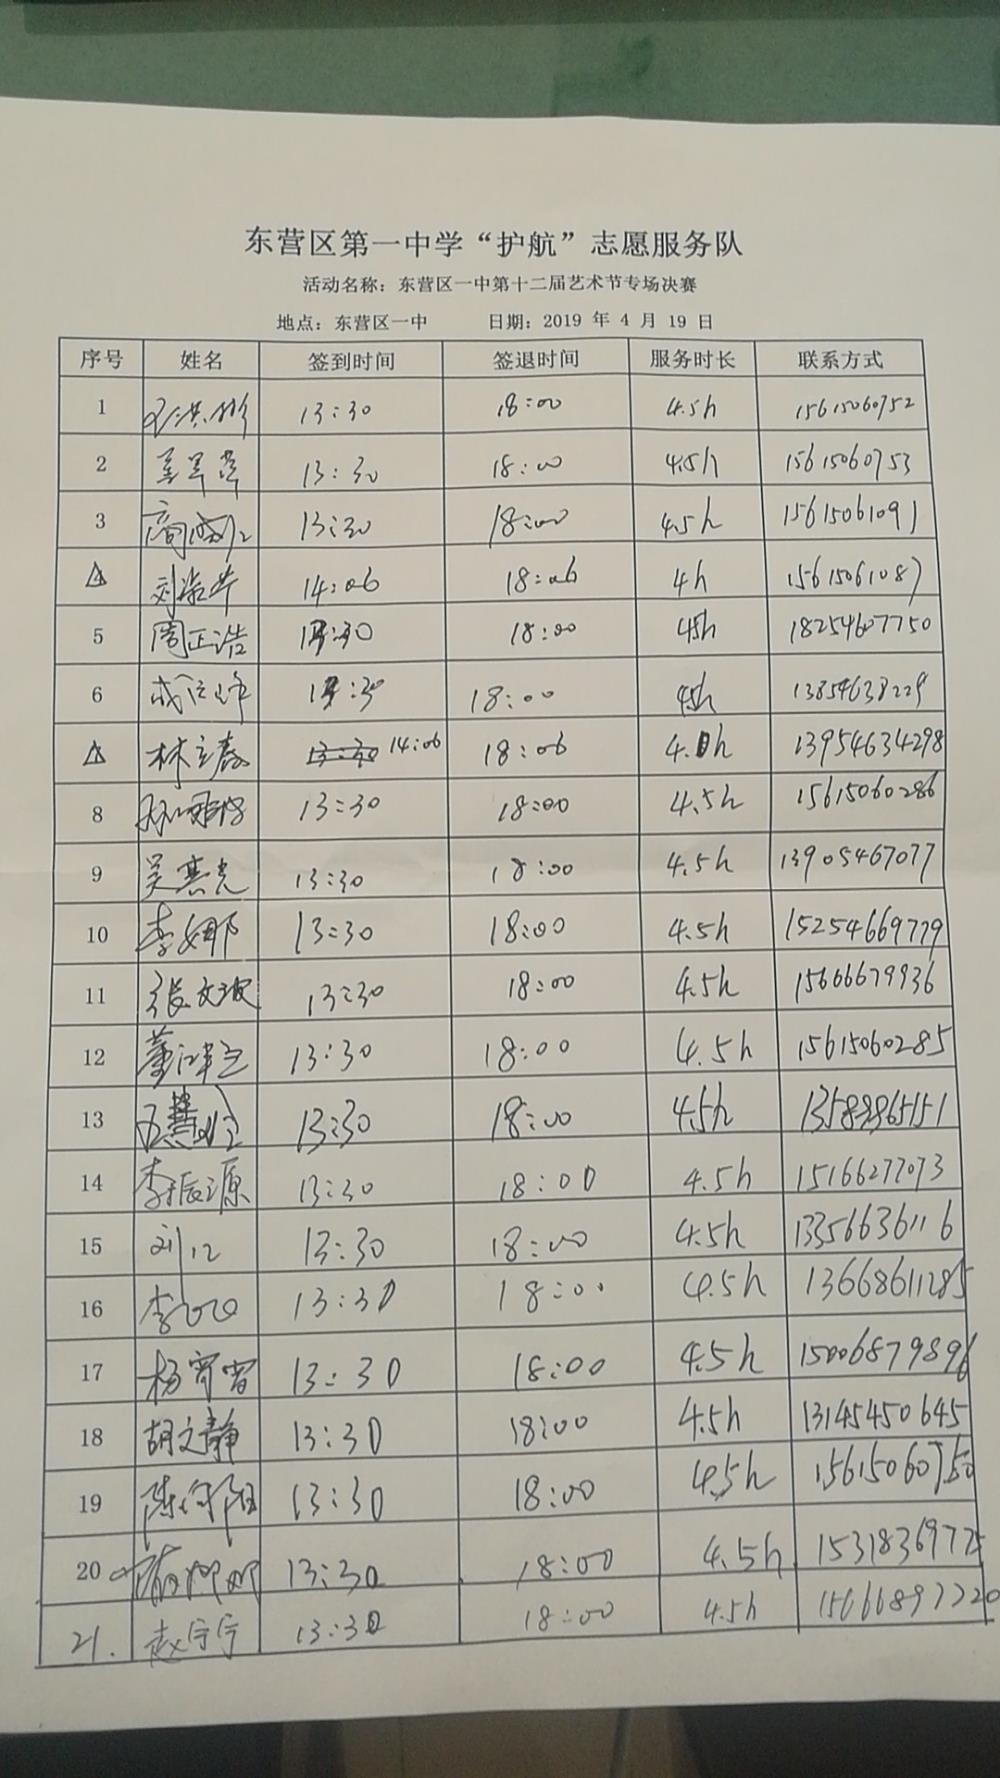 东营区第一中学“护航”志愿服务队
活动名称：东营区一中第十二届艺术节专场决赛
地点：东营区一中 日期：2019 年 4 月 19 日
序号 姓名 签到时间 签退时间 服务时长 联系方式
1 13:30 18:00 4.5h 15615060752
2 13:30 18:00 4.5h 15615060753
3 13:30 18:00 4.5h 15615061091
4 刘 14:06 18:06 4h 15615061087
5 周正浩 13:30 18:00 4.5h 18254607750
6 13:30 18:00 4.5h 13854638229
7 林立春 13:30 14:06 18:06 4.0h 13954634298
8 13:30 18:00 4.5h 15615060286
9 吴燕克 13:30 18:00 4.5h 13905467077
10 李娜 13:30 18:00 4.5h 15254669779
11 张文波 13:30 18:00 4.5h 15606679936
12 董 13:30 18:00 4.5h 15615060285
13 13:30 18:00 4.5h
14 李振源 13:30 18:00 4.5h 15166277073
15 刘江 13:30 18:00 4.5h 13356636116
16 李 13:30 18:00 4.5h 13668611285
17 杨宵雷 13:30 18:00 4.5h 15006879896
18 胡文静 13:30 18:00 4.5h 13145450645
19 陈 13:30 18:00 4.5h 15615060750
20 13:30 18:00 4.5h
21. 赵宁宁 13:30 18:00 4.5h 15666897220